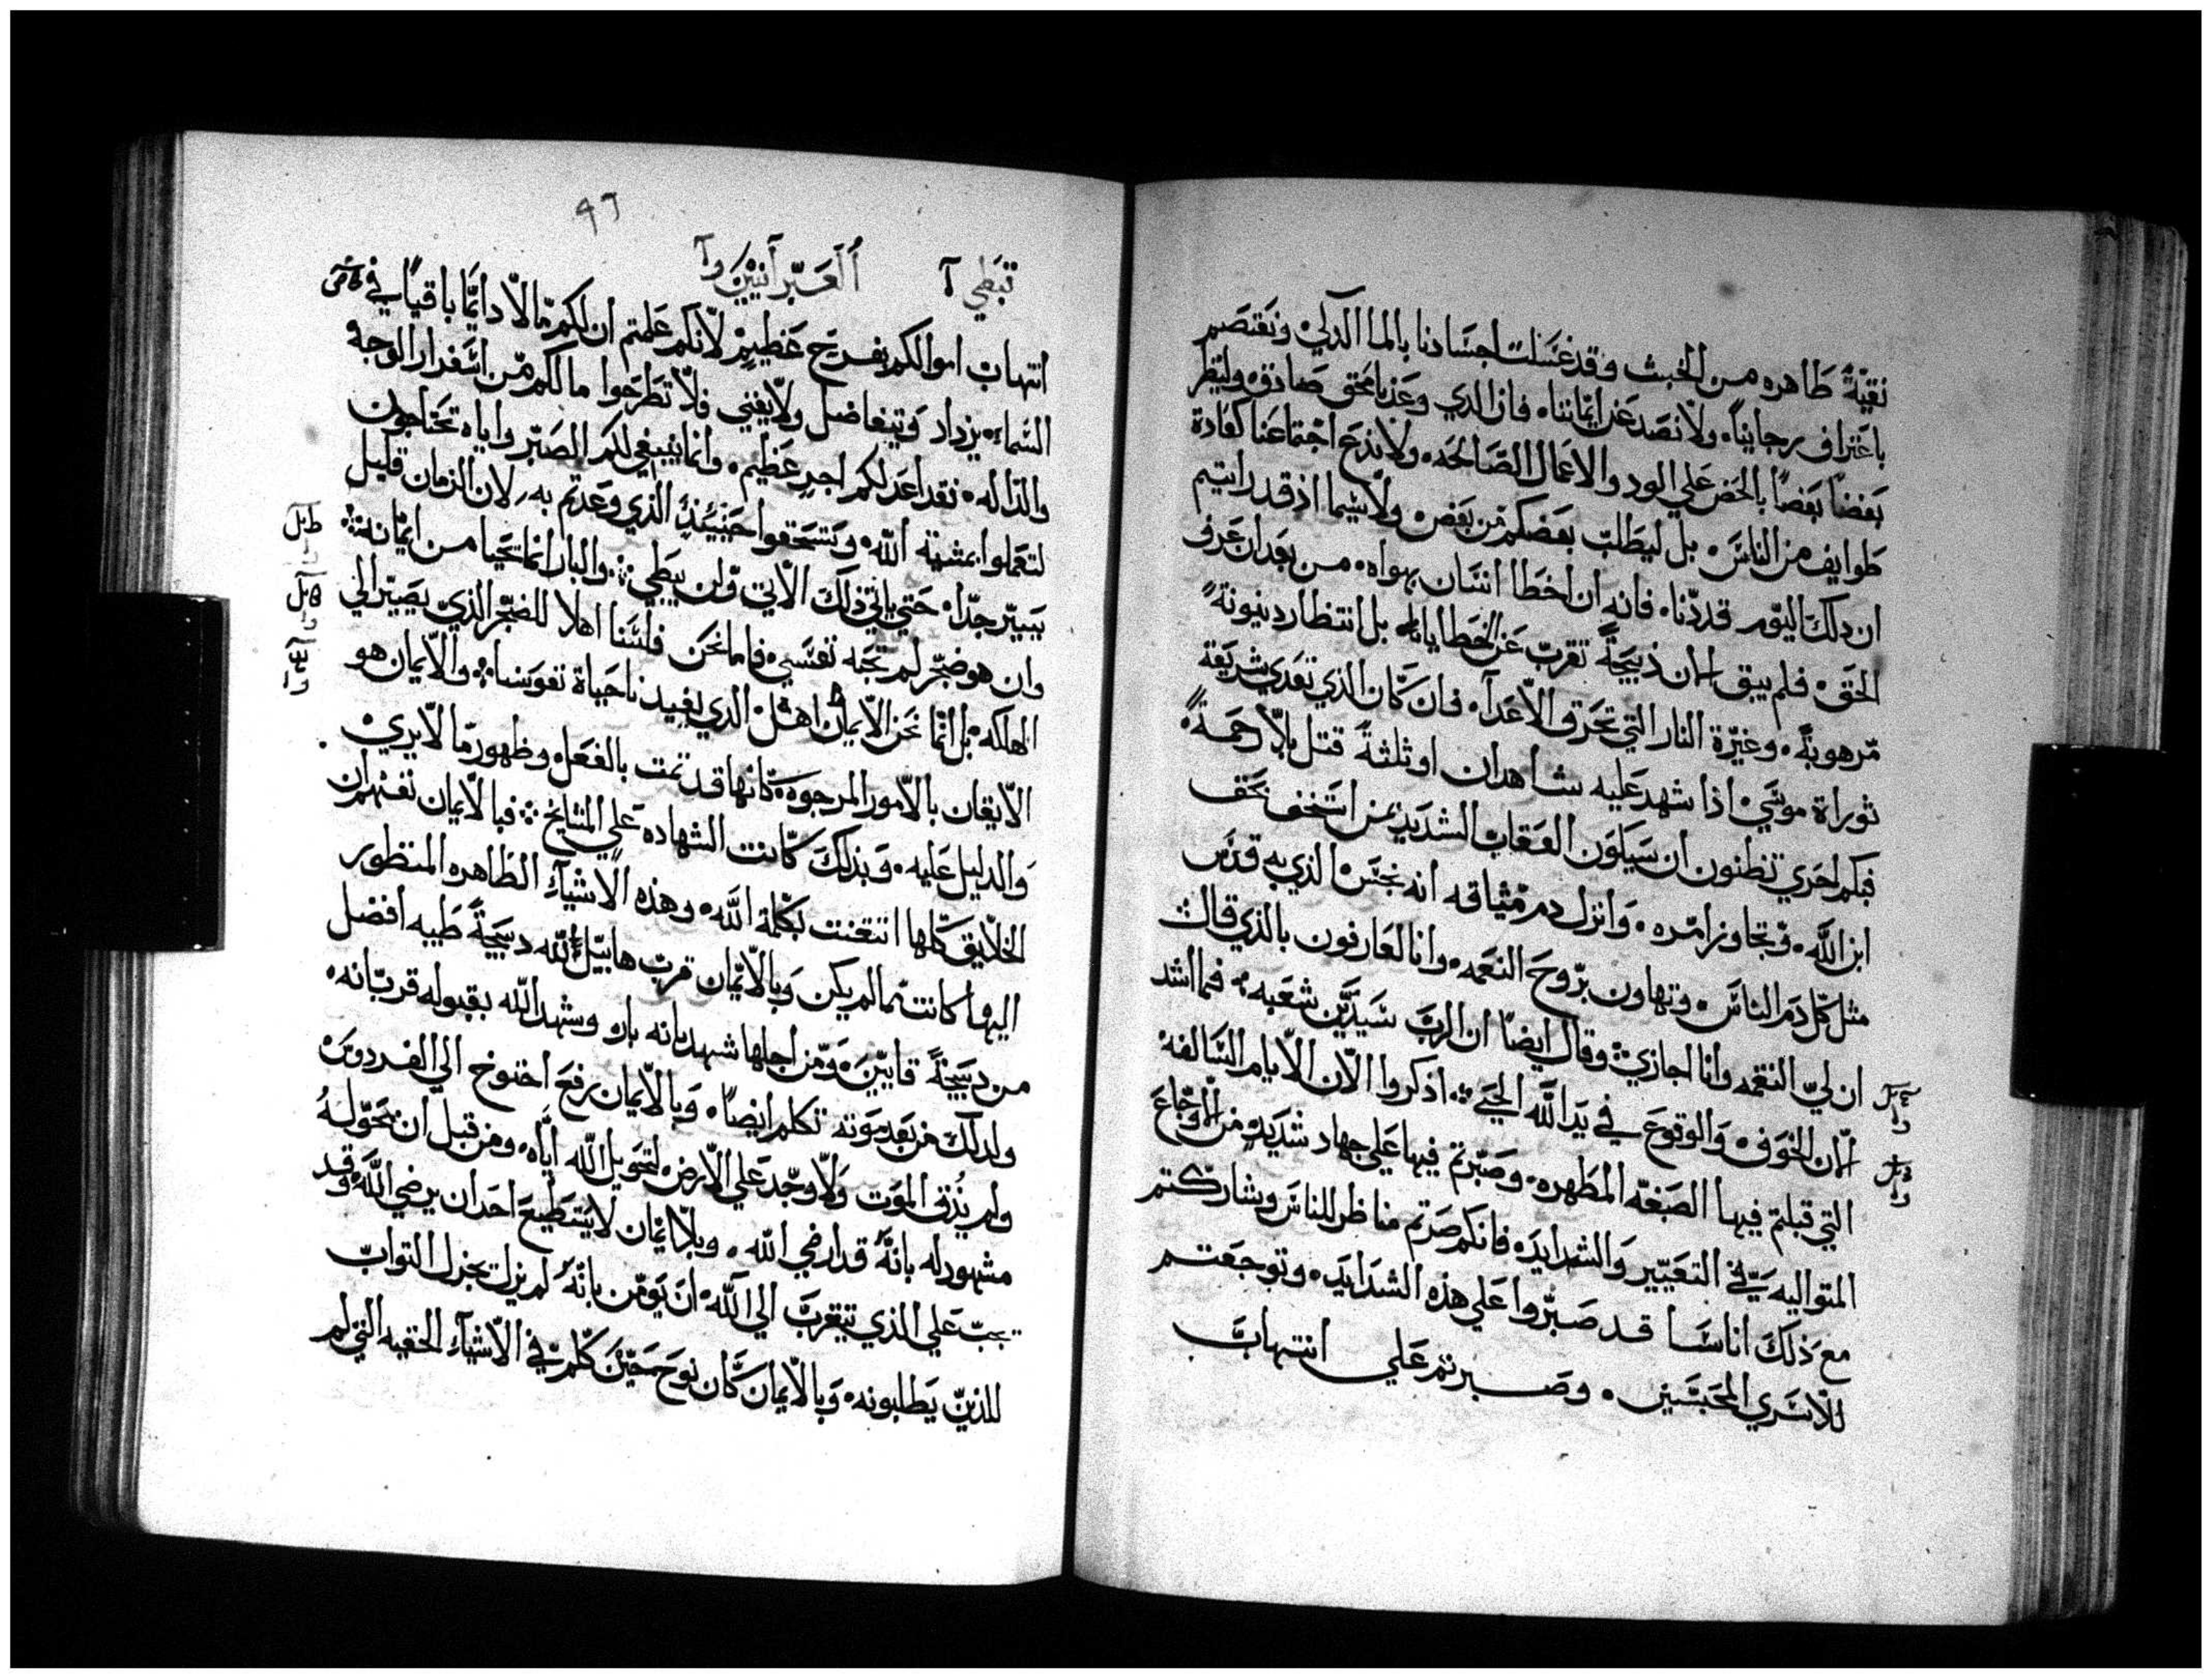 نقيةً طاهره من الخبث وقد غسلت اجسادنا بالما الذكي ونعتصم
باعتراف رجاينا ولا نصد عن ايماننا فان الذي وعدنا محق صادق ولينظر
بعضنا بعضًا بالحض علي الود والاعمال الصالحه ولا ندع اجتماعنا كعادة
طوايف من الناس بل ليطلب بعضكم من بعض ولا سيما اذ قد رايتم
ان ذلك اليوم قد دنا فانه ان اخطا انسان بهواه من بعد ان عرف
الحق فلم يبق ذبيحةً تقرب عن الخطايا بل انتظار دينونةً
مرهوبةً وغيرة النار التي تحرق الاعدآ فان كان الذي تعدي شريعة
توراة موسي اذا شهد عليه شاهدان او ثلثة قتل بلا رحمةً
فبكم احري تظنون ان سيكون العقاب الشديد بمن استخف بحق
ابن الله وتجاوز امره وانزل دم ميثاقه انه نجس الذي به قدس
مثل كل دم الناس وتهاون بروح النعمه وانا لعارفون بالذي قال
ان لي النقمه وانا اجازي وقال ايضًا ان الرب سيدين شعبه فما اشد
الخوف والوقوع في يد الله الحي اذكروا الان الايام السالفه
التي قبلتم فيها الصبغه المطهره وصبرتم فيها علي جهاد شديد من الاوجاع
المتواليه في التعيير والشدايد فانكم صرتم مناظر للناس وشاركتم
مع ذلك اناسًا قد صبروا علي هذه الشدايد وتوجعتم
للاسري المحبسين وصبرتم علي انتهاب
قبطي آ العبرانيين وآ
٩٦
انتهاب اموالكم بفرح عظيم لانكم علمتم ان لكم مالا دايمًا باقيًا في
السماء يزداد ويتفاضل ولا يفني فلا تطرحوا مالكم من اسفرار الوجه
والداله فقد اعد لكم اجر عظيم وانما ينبغي لكم الصبر واياه تحتاجون
لتعملوا بمشية الله وتستحقوا حينئذٍ الذي وعدتم به لان الزمان قليل
يسير جدا حتي ياتي ذلك الاتي ولن يبطي والبار انما تحيا من ايمانه
وان هو ضجر لم تحبه نفسي فاما نحن فلسنا اهلا للضجر الذي يصير الي
الهلكه بل انما نحن الايمان اهل الذي يفيدنا حياة نفوسنا والايمان هو
الايقان بالامور المرجوه كانها قد تمت بالفعل وظهور ما لا يري
والدليل عليه وبذلك كانت الشهاده علي المشايخ فبالايمان نفهم ان
الخلايق كلها اتقنت بكلمة الله وهذه الاشياء الظاهره المنظور
اليها كانت مما لم يكن وبالايمان قرب هابيل لله دبيحةً طيبه افضل
من دبيحةً قايين ومن اجلها شهد بانه بار وشهد الله بقبوله قربانه
ولدلك من بعد موته تكلم ايضًا وبالايمان رفع اخنوخ الي الفردوس
ولم يُذق الموت ولا وجد علي الارض لتحويل الله اياه ومن قبل ان يحوله
مشهود له بانه قد ارضي الله وبلا ايمان لا يستطيع احد ان يرضي الله وقد
يجب علي الذي يتقرب الي الله ان يومن بانه لم يزل يجزل التواب
للذين يطلبونه وبالايمان كان نوح حين كلم في الاشياء الخفيه التي لم